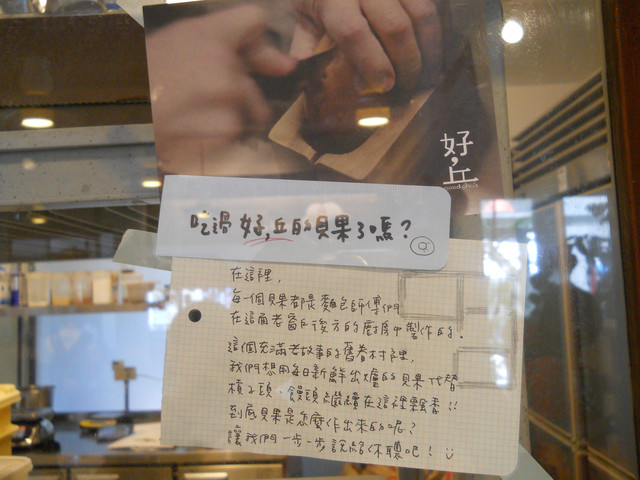 好,丘
吃過好,丘的貝果了嗎?
在這裡,
每一個貝果都是麵包師傅們
在這面老窗戶後方的廚房中製作的.
這個充滿老故事的舊眷村裡,
我們想用每日新鮮出爐的貝果代替
槓子頭、饅頭繼續在這裡飄香!!
到底貝果是怎麼作出來的呢?
讓我們一步一步說給你聽吧!